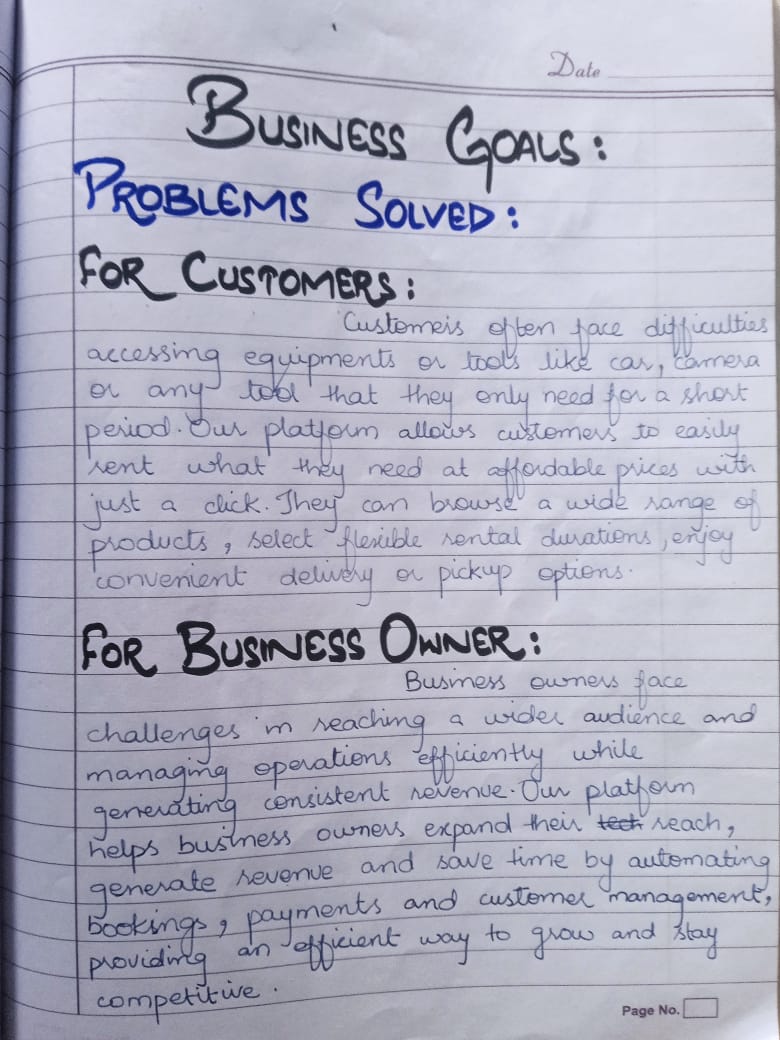 Date
BUSINESS GOALS:
PROBLEMS SOLVED:
FOR CUSTOMERS:
Customers often face difficulties
accessing equipments or tools like car, camera
or any tool that they only need for a short
period. Our platform allows customers to easily
rent what they need at affordable prices with
just a click. They can browse a wide range of
products, select flexible rental durations, enjoy
convenient delivery or pickup options.
FOR BUSINESS OWNER:
Business owners face
challenges in reaching a wider audience and
managing operations efficiently while
generating consistent revenue. Our platform
helps business owners expand their tech reach,
generate revenue and save time by automating
bookings, payments and customer management,
providing an efficient way to grow and stay
competitive.
Page No.